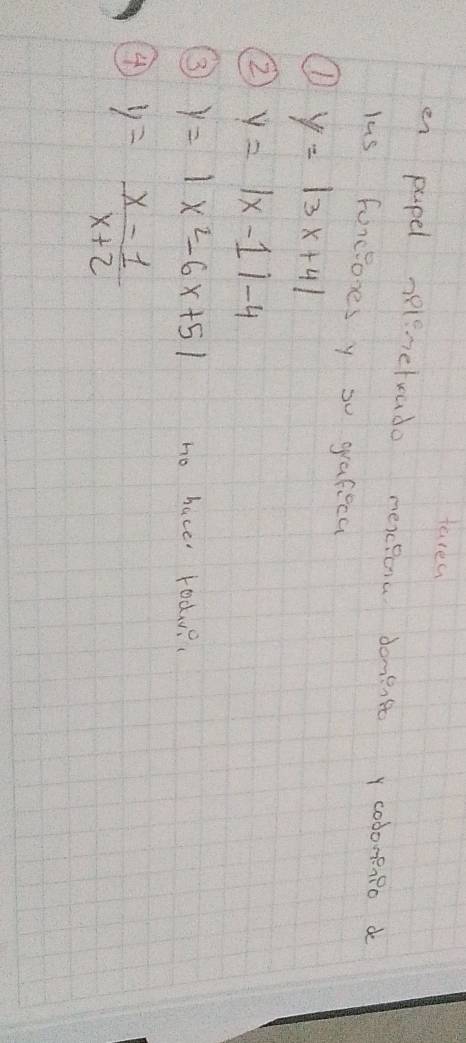 tarea
en papel milimetrado menciona dominio y codominio de
las funciones y su grafica
① y = |3x+4|
② y = |x-1|-4
③ y = |x²-6x+5| no hacer todavia
④ y = \frac{x-1}{x+2}